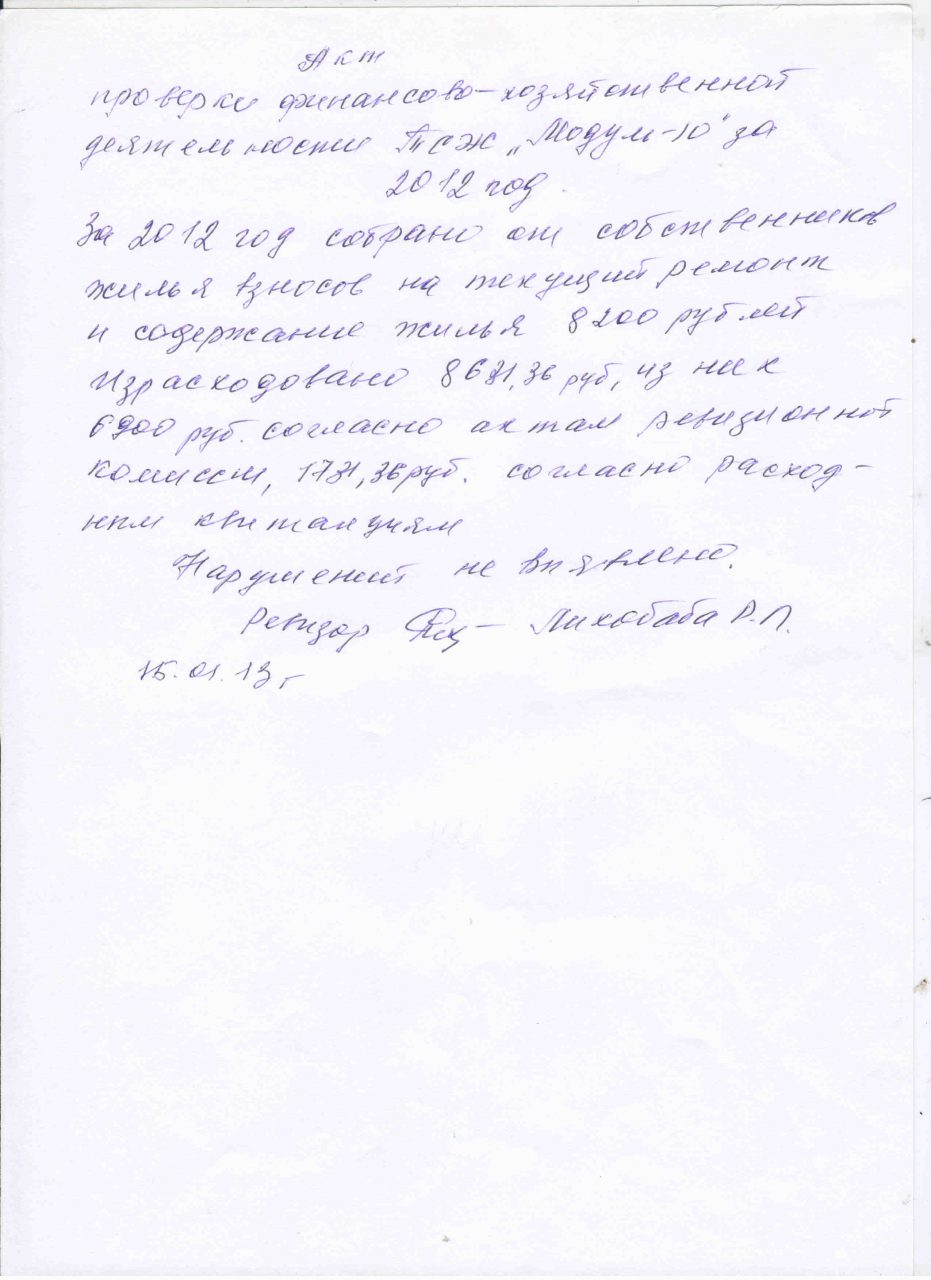 Акт
проверки финансово-хозяйственной
деятельности ТСЖ „Модуль-Ю" за
2012 год.
За 2012 год собрано от собственников
жилья взносов на текущий ремонт
и содержание жилья 8200 рублей
Израсходовано руб, из них
6900 руб. согласно актам ревизионной
комиссии, руб. согласно расход-
ным квитанциям
Нарушений не выявлено.
Ревизор Лихобаба Р.П.
15.01.13 г